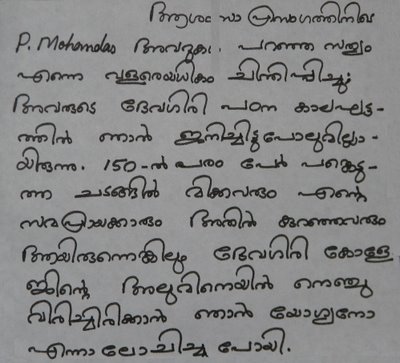 ആശംസാ പ്രസംഗത്തിനിടെ
P. Mohandas അവറുകൾ. പറഞ്ഞ സത്യം
എന്നെ വളരെയധികം ചിന്തിപ്പിച്ചു;
അവരുടെ ദേവഗിരി പഠന കാലഘട്ട-
ത്തിൽ ഞാൻ ജനിച്ചിട്ടുപോലുമില്ലാ-
യിരുന്നു. 150-ൽ പരം പേർ പങ്കെടു-
ത്ത ചടങ്ങിൽ മിക്കവരും എന്റെ
സമപ്രായക്കാരും അതിൽ കുറഞ്ഞവരും
ആയിരുന്നെങ്കിലും ദേവഗിരി കോളേ
ജിന്റെ അലുമിനെയിൻ നെഞ്ചു
വിരിച്ചിരിക്കാൻ ഞാൻ യോഗ്യനോ
എന്നാലോചിച്ചു പോയി.